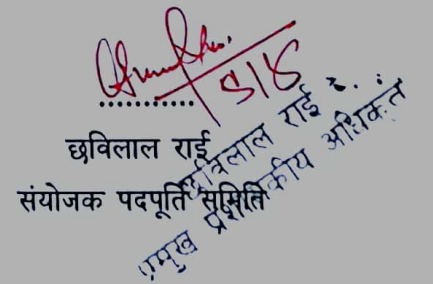 ५/४
..............
छविलाल राई
संयोजक पदपूर्ति समिति
छविलाल राई
प्रमुख प्रशासकीय अधिकृत